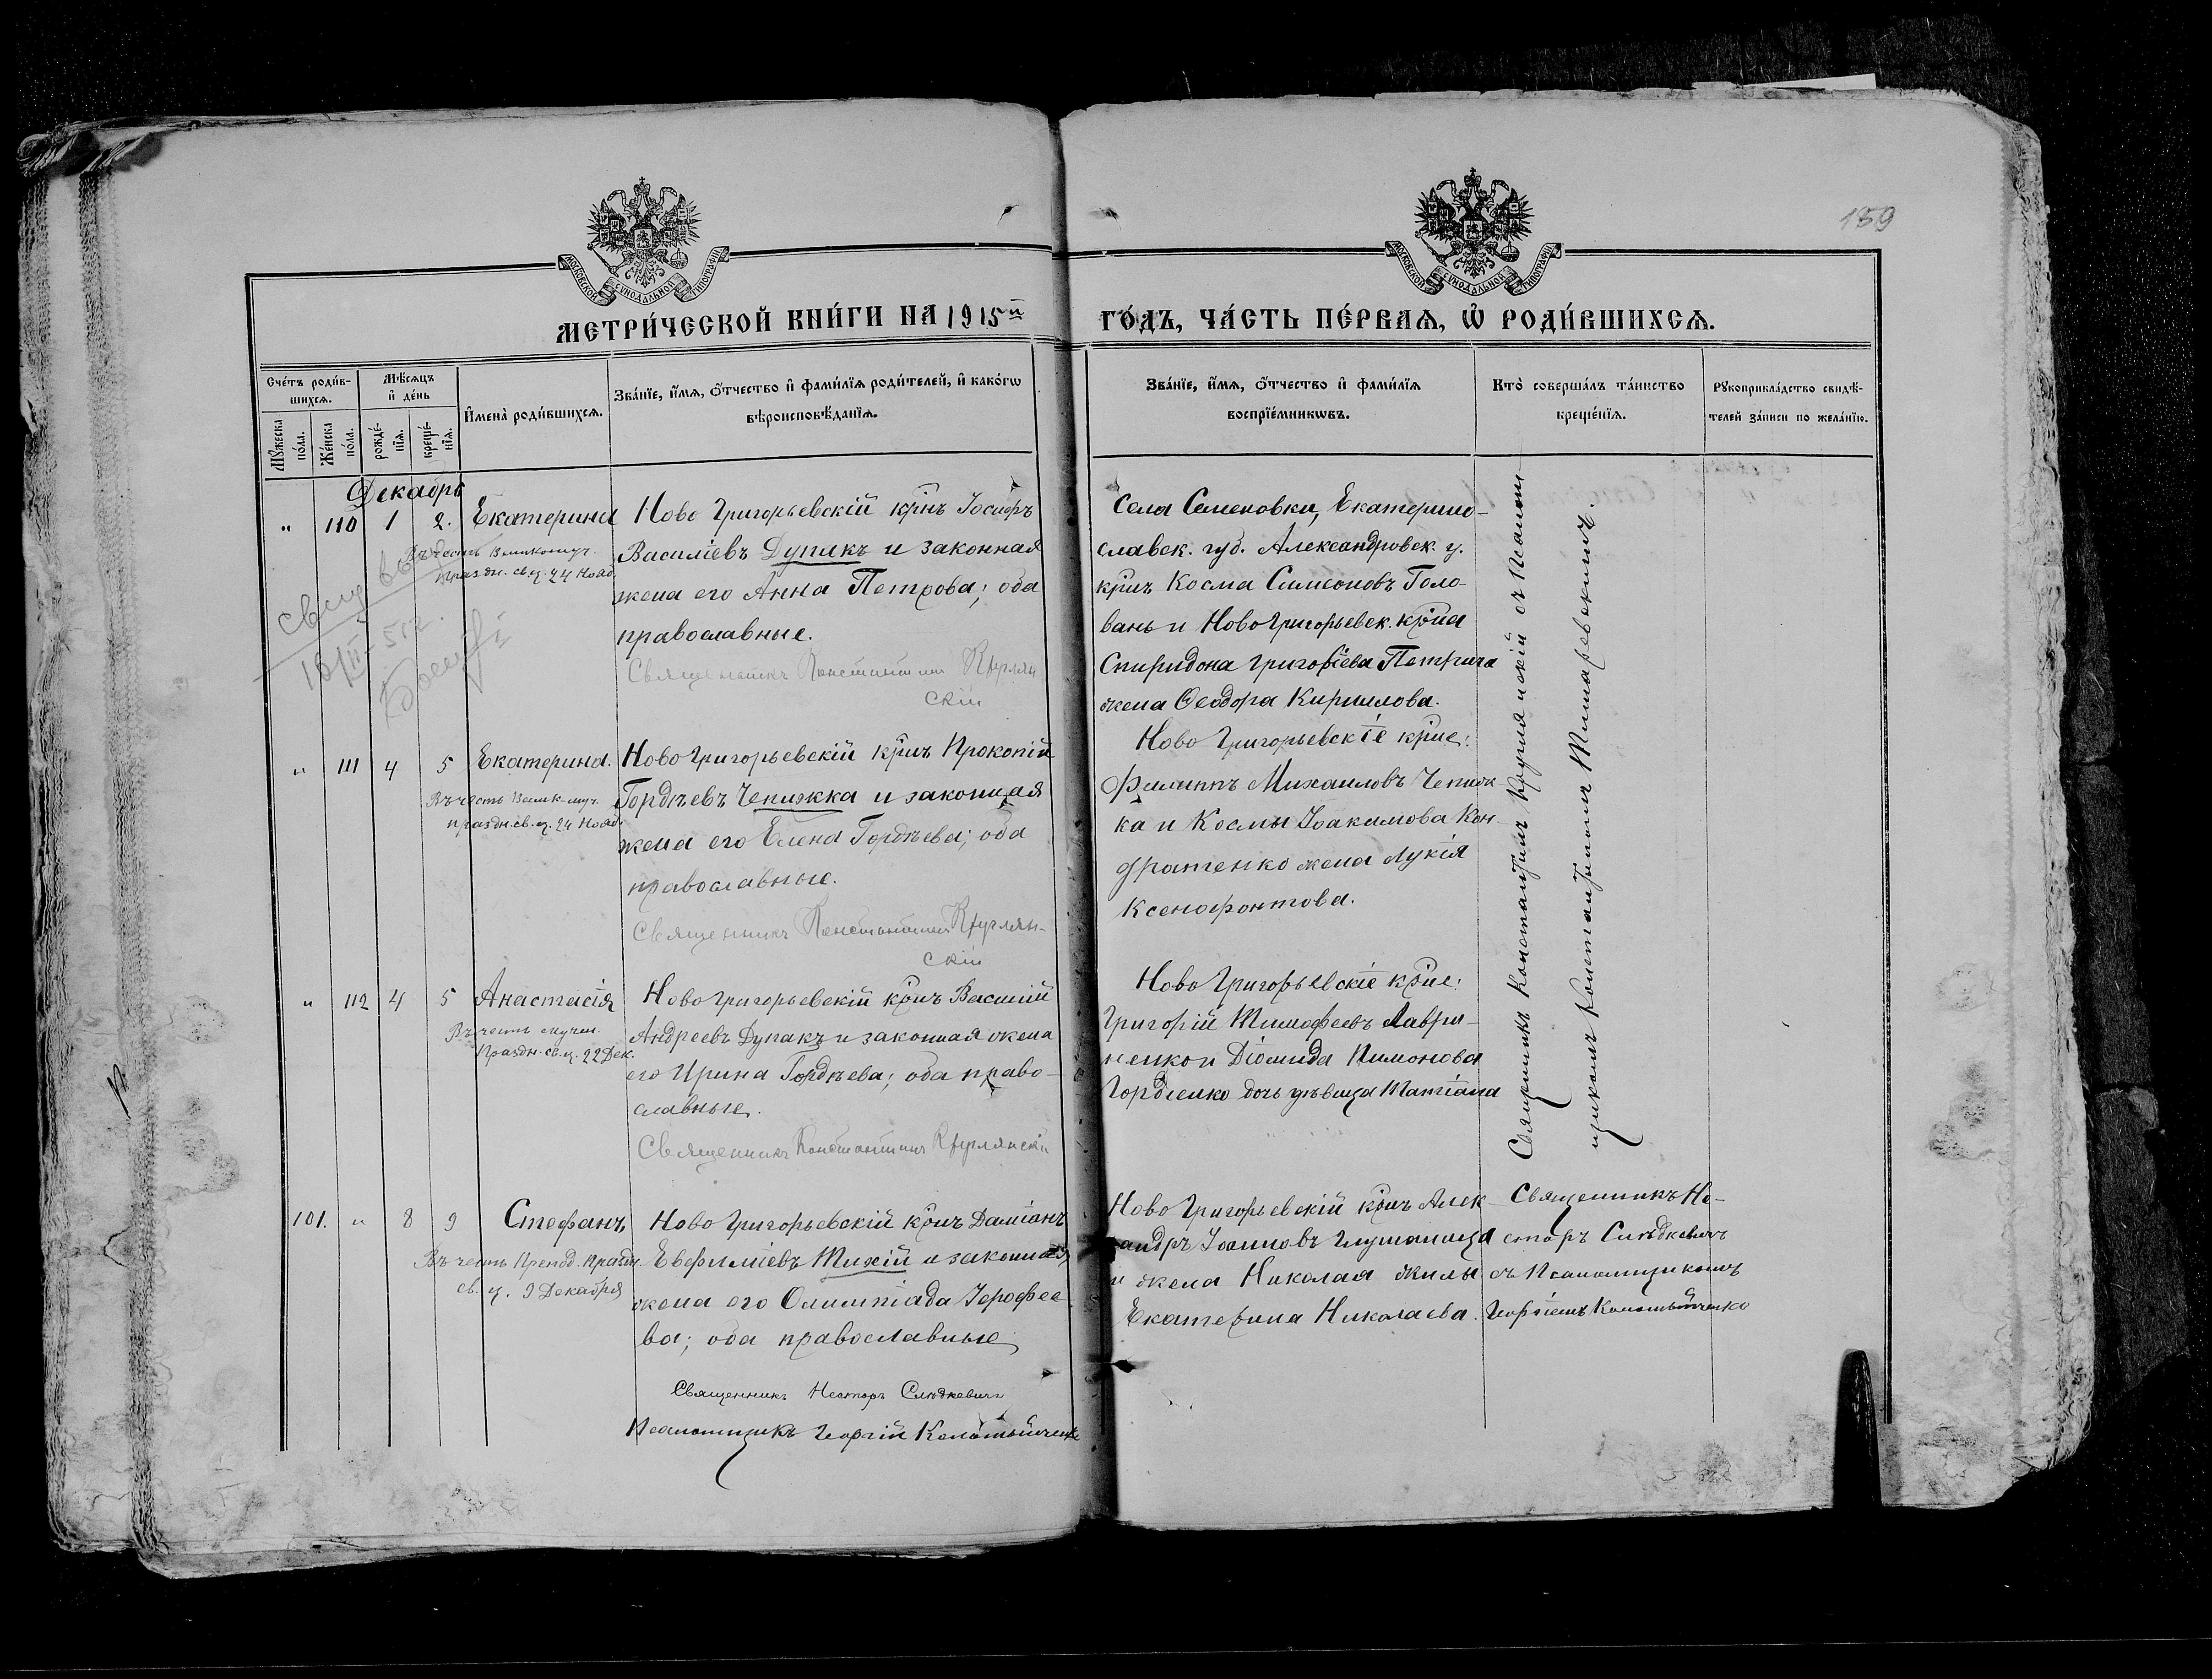 159
МОСКОВСКОЙ СѴНОДАЛЬНОЙ ТИПОГРАФІИ
МОСКОВСКОЙ СѴНОДАЛЬНОЙ ТИПОГРАФІИ
МЕТРИ́ЧЕСКОЙ КНИ́ГИ НА 1915й ГО́ДЪ, ЧА́СТЬ ПЕ́РВАѦ, Ѡ РОДИ́ВШИХСѦ.
Сче́тъ роди́в-
шихсѧ.
Мꙋжеска по́ла.
Же́нска по́ла.
Мѣ́сѧцъ
и҆ де́нь
рожде́-
нїѧ.
креще́-
нїѧ.
И҆мена̀ роди́вшихсѧ.
Зва́нїе, и҆́мѧ, ѻ҆́тчество и҆ фами́лїѧ роди́телей, и҆ како́гѡ
вѣроисповѣ́данїѧ.
Зва́нїе, и҆́мѧ, ѻ҆́тчество и҆ фами́лїѧ
воспрїе́мникѡвъ.
Кто̀ соверша́лъ та́инство
креще́нїѧ.
Рꙋкоприкла́дство свидѣ́-
телей за́писи по жела́нїю.
Декабрь
" 110 1 2. Екатерина
Въ честь Великомуч.
Праздн. св. ц. 24 Нояб.
Ново Григорьевскій крнъ Іосифъ
Василіевъ Дупакъ и законная
жена его Анна Петрова; оба
православные.
Священникъ Константинъ Круглян
скій
Села Семеновки, Екатерино-
славск. губ. Александровск. у.
крнъ Косма Симеоновъ Голо-
вань и Ново Григорьевск. крна
Спиридона Григоріева Петрича
жена Феодора Кириллова.
" 111 4 5 Екатерина.
Въ честь Велик-муч.
праздн. св. ц. 24 Нояб.
Ново Григорьевскій крнъ Прокопій
Гордѣевъ Чепижка и законная
жена его Елена Гордѣева; оба
православные.
Священникъ Константинъ Круглян-
скій
Ново Григорьевскіе крне:
Филиппъ Михаиловъ Чепиж-
ка и Космы Іоакимова Кон-
дратенко жена Лукія
Ксенофонтова.
" 112 4 5 Анастасія
Въ честь мучен.
Праздн. св. ц. 22 Дек.
Ново Григорьевскій крнъ Василій
Андреевъ Дупакъ и законная жена
его Ирина Гордѣева; оба право-
славные.
Священникъ Константинъ Круглянскій
Ново Григорьевскіе крне:
Григорій Тимофеевъ Лаври-
ненко и Діомида Пимонова
Гордіенко дочь дѣвица Татіана
Священникъ Константинъ Круглянскій съ Псаломщикомъ Константиномъ
101. " 8 9 Стефанъ
Въ честь Препод. празд.
св. ц. 9 Декабря
Ново Григорьевскій крнъ Даміанъ
Евфиміевъ Тихій и законная
жена его Олимпіада Іерофее-
ва; оба православные
Священникъ Несторъ Слѣдкевичъ
Псаломщикъ Георгій Коломыйченко
Ново Григорьевскій крнъ Алек-
андръ Іоанновъ Глушаница
и жена Николая Жилы
Екатерина Николаева.
Священникъ Не-
сторъ Слѣдкевичъ
съ Псаломщикомъ
Георгіемъ Коломыйченко